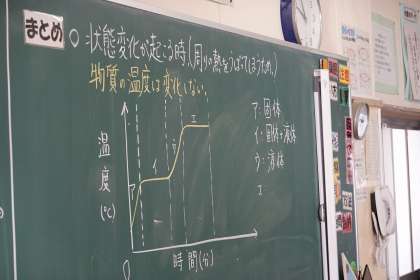 まとめ
○状態変化が起こる時、(周りの熱をうばってしまうため、)
物質の温度は変化しない。
温度
(℃)
ア
イ
ウ
エ
0
時間(分)
ア:固体
イ:固体+液体
ウ:液体
エ